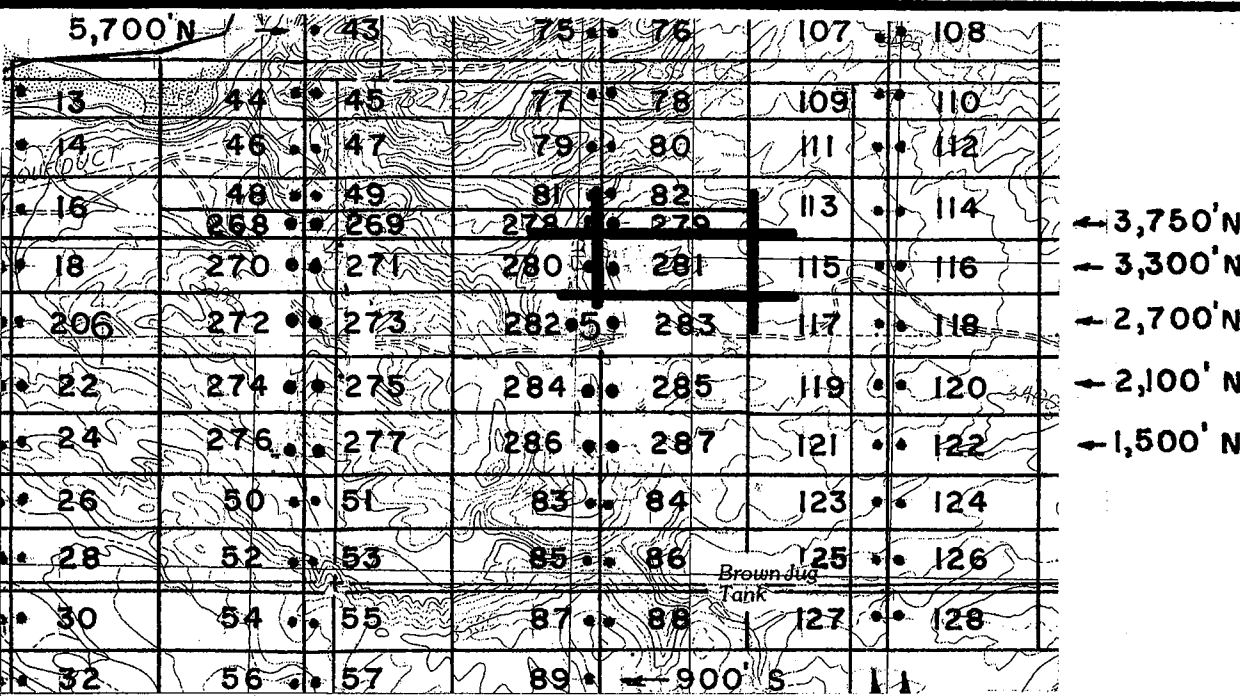 5,700'N 43 75 76 107 108
13 44 45 77 78 109 110
14 46 47 79 80 111 112
AQUEDUCT
48 49 81 82
16 113 114
268 269 278 279 ←3,750'N
18 270 271 280 281 115 116 ←3,300'N
206 272 273 282 5 283 117 118 ←2,700'N
22 274 275 284 285 119 120 ←2,100'N
24 276 277 286 287 121 122 ←1,500'N
26 50 51 83 84 123 124
28 52 53 85 86 125 126
Brown Jug
Tank
30 54 55 87 88 127 128
32 56 57 89 ←900'S